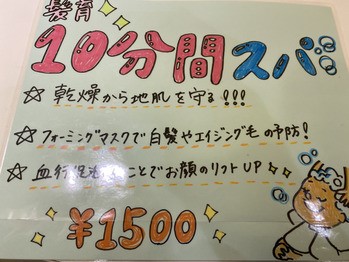 髪育
10分間スパ
☆ 乾燥から地肌を守る!!!
☆ フォーミングマスクで白髪やエイジング毛の予防!
☆ 血行促 ことでお顔のリフトUP
¥1500